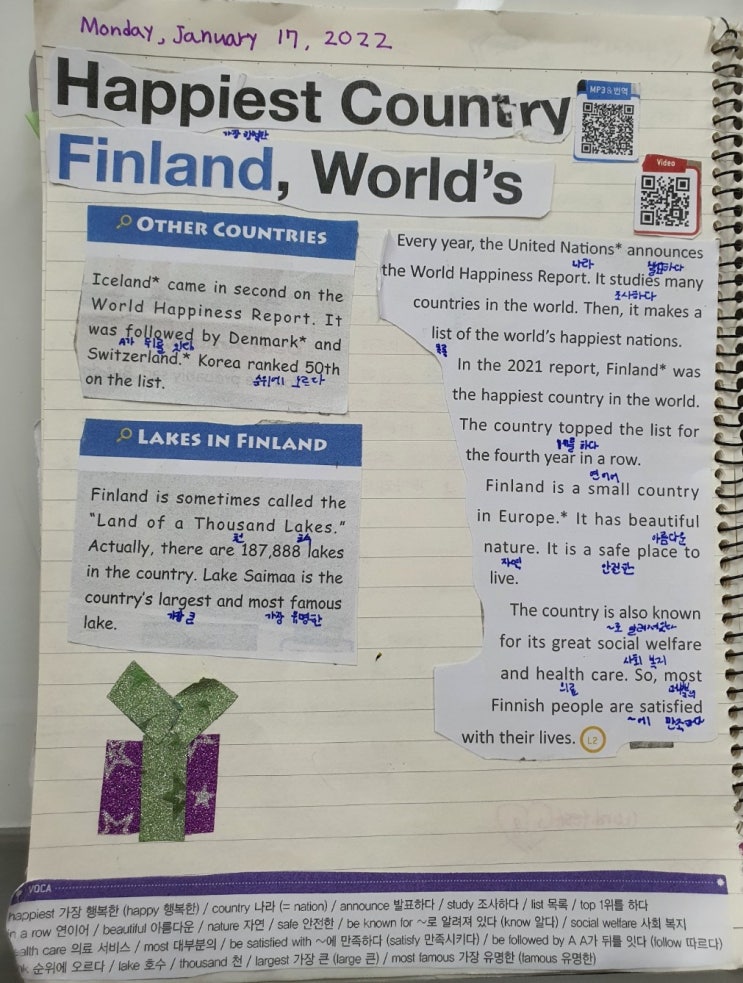 Monday, January 17, 2022
Happiest Country
가장 행복한
Finland, World's
MP3&번역
Video
OTHER COUNTRIES
Iceland* came in second on the
World Happiness Report. It
was followed by Denmark* and
A가 뒤를 잇다
Switzerland.* Korea ranked 50th
순위에 오르다
on the list.
LAKES IN FINLAND
Finland is sometimes called the
"Land of a Thousand Lakes."
천 호수
Actually, there are 187,888 lakes
in the country. Lake Saimaa is the
country's largest and most famous
가장 큰 가장 유명한
lake.
Every year, the United Nations* announces
나라 발표하다
the World Happiness Report. It studies many
조사하다
countries in the world. Then, it makes a
list of the world's happiest nations.
목록
In the 2021 report, Finland* was
the happiest country in the world.
The country topped the list for
1위를 하다
the fourth year in a row.
연이어
Finland is a small country
in Europe.* It has beautiful
아름다운
nature. It is a safe place to
자연 안전한
live.
The country is also known
~로 알려져있다
for its great social welfare
사회 복지
and health care. So, most
의료 대부분의
Finnish people are satisfied
~에 만족하다
with their lives. L2
VOCA
happiest 가장 행복한 (happy 행복한) / country 나라 (= nation) / announce 발표하다 / study 조사하다 / list 목록 / top 1위를 하다
in a row 연이어 / beautiful 아름다운 / nature 자연 / safe 안전한 / be known for ~로 알려져 있다 (know 알다) / social welfare 사회 복지
ealth care 의료 서비스 / most 대부분의 / be satisfied with ~에 만족하다 (satisfy 만족시키다) / be followed by A A가 뒤를 잇다 (follow 따르다)
nk 순위에 오르다 / lake 호수 / thousand 천 / largest 가장 큰 (large 큰) / most famous 가장 유명한 (famous 유명한)